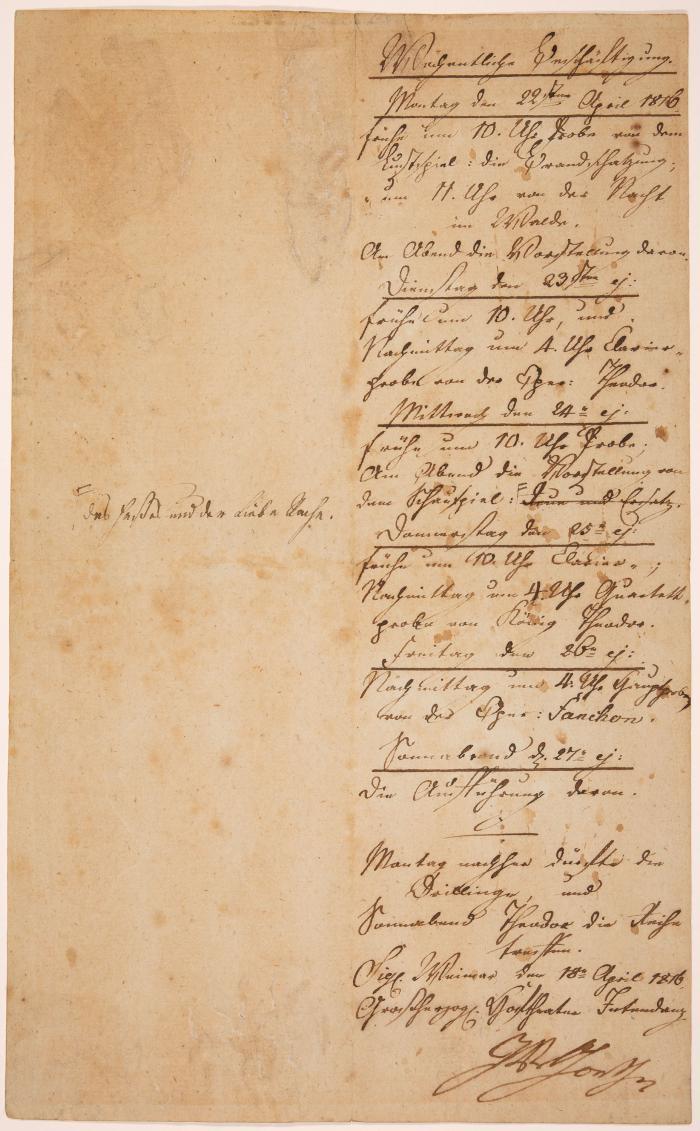 Wöchentliche Beschäftigung.
Montag den 22sten April 1816
frühe um 10. Uhr Probe von dem
Lustspiel: die Brandschatzung;
um 11. Uhr von der Nacht
im Walde.
Am Abend die Vorstellung davon.
Dienstag den 23sten ej:
frühe um 10. Uhr, und
Nachmittag um 4. Uhr Clavier-
probe von der Oper: Theodor.
Mittwoch den 24n ej:
frühe um 10. Uhr Probe;
Am Abend die Vorstellung von
dem Schauspiel: Reue und Ersatz.
des und der Liebe Rache.
Donnerstag den 25n ej:
frühe um 10. Uhr Clavier-;
Nachmittag um 4. Uhr Quartett-
probe von König Theodor.
Freitag den 26n ej:
Nachmittag um 4. Uhr Hauptprobe
von der Oper: Fanchon.
Sonnabend d. 27n ej:
Die Aufführung davon.
Montag nachher dürfte die
Drillinge, und
Sonnabend Theodor die Reihe
treffen.
Sigl. Weimar den 18n April 1816
Großherzogl. Hoftheater Intendanz
JWvGoethe